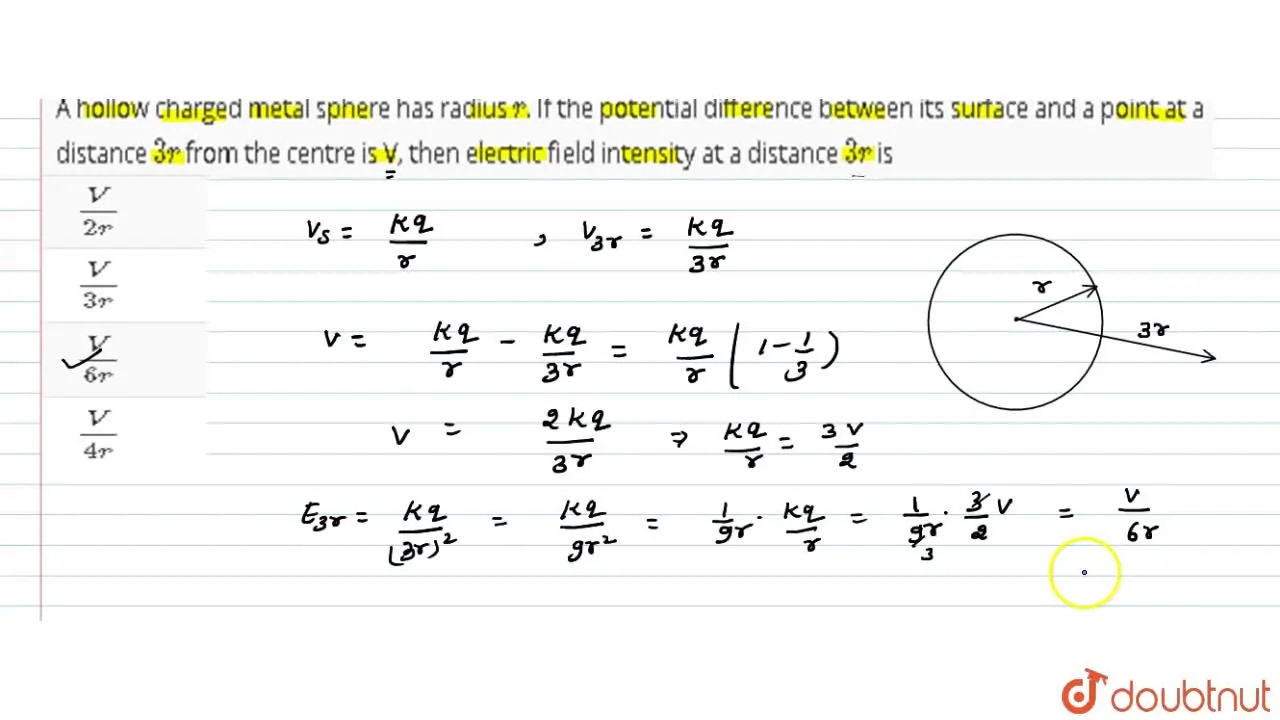 A hollow charged metal sphere has radius r. If the potential difference between its surface and a point at a
distance 3r from the centre is V, then electric field intensity at a distance 3r is
V/2r
V/3r
V/6r
V/4r
Vs = kq/r , V3r = kq/3r
V = kq/r - kq/3r = kq/r (1 - 1/3)
V = 2kq/3r ⇒ kq/r = 3V/2
E3r = kq/(3r)² = kq/9r² = 1/9r · kq/r = 1/9r · 3/2 V = V/6r
3
r
3r
doubtnut